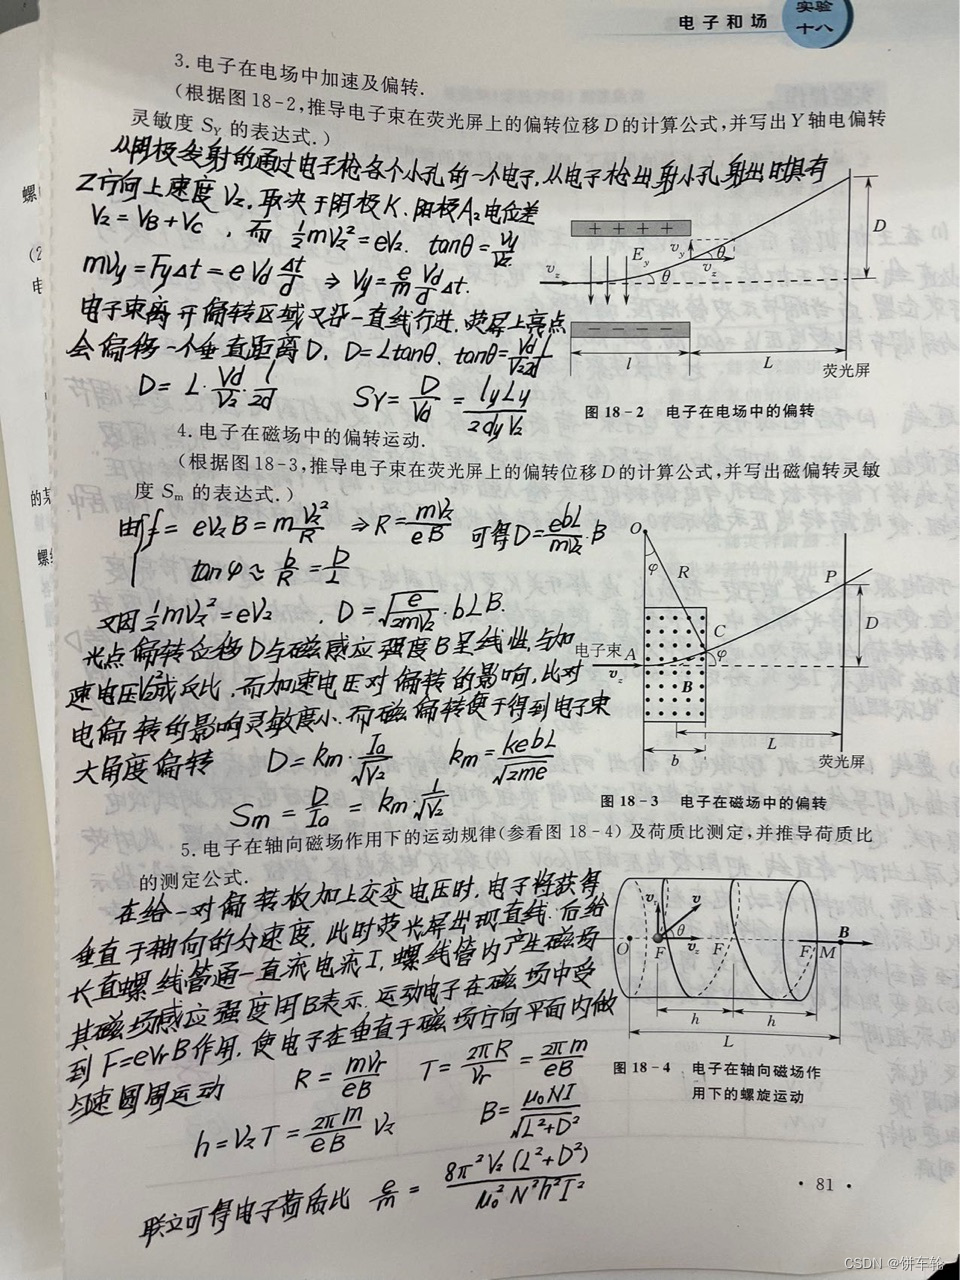 电子和场
实验
十八
3. 电子在电场中加速及偏转.
(根据图18-2,推导电子束在荧光屏上的偏转位移D的计算公式,并写出Y轴电偏转
灵敏度 S_Y 的表达式.)
从阴极发射的通过电子枪各个小孔的一个电子,从电子枪出射小孔射出时具有
Z方向上速度 Vz, 取决于阴极K、阳极A₂电位差
V₂ = V_B + V_C , 而 ½mVz² = eV₂. tanθ = Vy/Vz
mVy = Fy Δt = eVd Δt/d ⇒ Vy = e/m Vd/d Δt.
电子束离开偏转区域又沿一直线行进,荧屏上亮点
会偏移一个垂直距离D, D = Ltanθ.
D = L · Vd/V₂ · l/2d S_Y = D/Vd = lyLy/2dyV₂
E_y
v_y
θ
v_z
v_z
θ
D
l
L
荧光屏
图 18-2 电子在电场中的偏转
4. 电子在磁场中的偏转运动.
(根据图18-3,推导电子束在荧光屏上的偏转位移D的计算公式,并写出磁偏转灵敏
度 S_m 的表达式.)
由 f = eVzB = m Vz²/R ⇒ R = mVz/eB 可得 D = ebL/mVz · B
tanφ ≈ b/R = D/L
又因 ½mVz² = eV₂ , D = √(e/2mV₂) · bLB.
光点偏转位移D与磁感应强度B呈线性,与加
速电压 成反比,而加速电压对偏转的影响,比对
电偏转的影响灵敏度小.而磁偏转便于得到电子束
大角度偏转 D = km · I₀/√V₂ km = kebL/√2me
Sm = D/I₀ = km · 1/√V₂
O
φ
R
P
C
D
电子束 A
v_z
φ
B
L
b
荧光屏
图 18-3 电子在磁场中的偏转
5. 电子在轴向磁场作用下的运动规律(参看图 18-4) 及荷质比测定,并推导荷质比
的测定公式.
在给一对偏转板加上交变电压时,电子将获得
垂直于轴向的分速度,此时荧光屏出现直线.后给
长直螺线管通一直流电流I,螺线管内产生磁场
其磁场感应强度用B表示.运动电子在磁场中受
到 F=eVrB作用,使电子在垂直于磁场方向平面内做
匀速圆周运动 R = mVr/eB T = 2πR/Vr = 2πm/eB
h = VzT = 2πm/eB Vz B = μ₀NI/√L²+D²
联立可得电子荷质比 e/m = 8π²V₂(L²+D²)/μ₀²N²h²I²
v
θ
v_z
B
O
F
F
F
M
h
h
L
图 18-4 电子在轴向磁场作
用下的螺旋运动
· 81 ·
CSDN @饼车轮